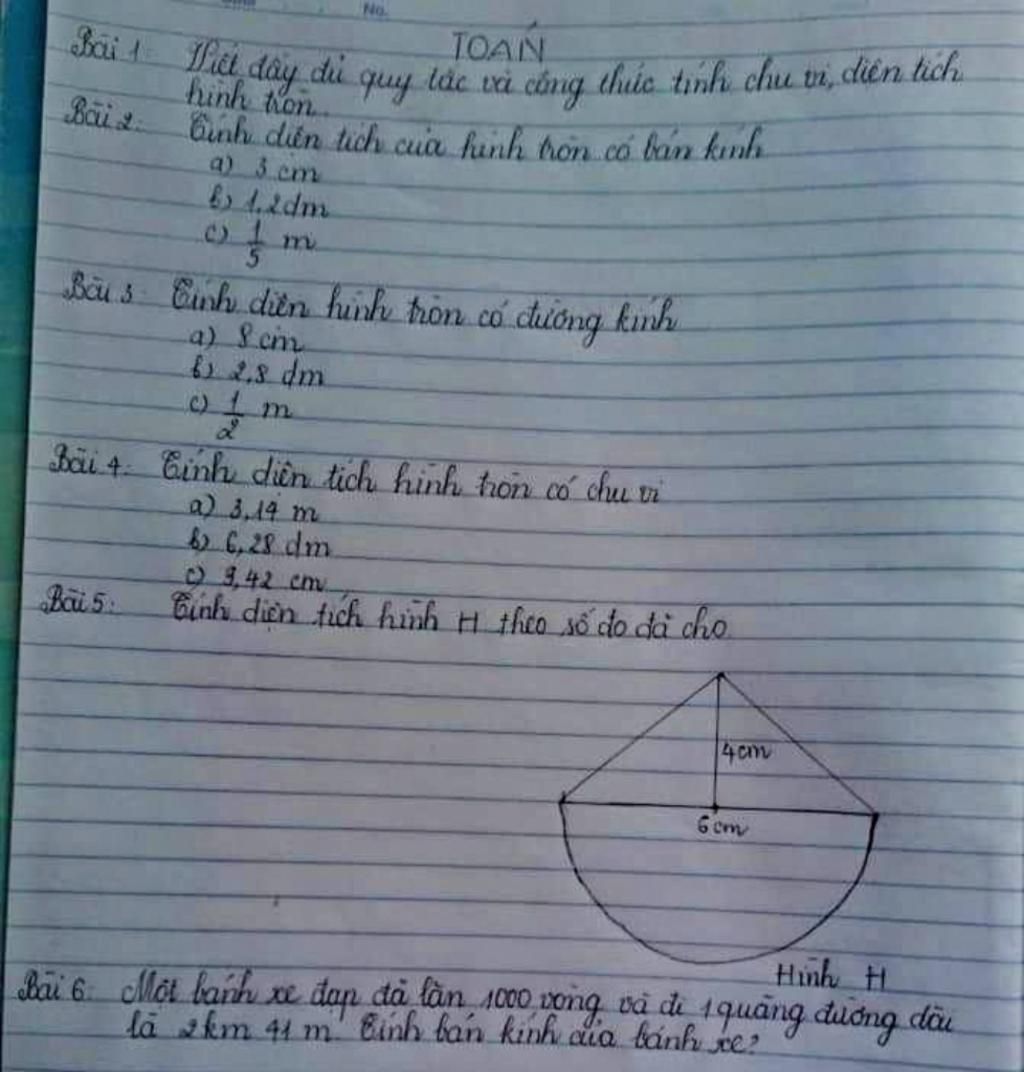 No.
TOÁN
Bài 1: Viết đầy đủ quy tắc và công thức tính chu vi, diện tích
hình tròn.
Bài 2: Tính diện tích của hình tròn có bán kính
a) 3 cm
b) 1,2 dm
c) 1/5 m
Bài 3: Tính diện hình tròn có đường kính
a) 8 cm
b) 2,8 dm
c) 1/2 m
Bài 4: Tính diện tích hình tròn có chu vi
a) 3,14 m
b) 6,28 dm
c) 9,42 cm
Bài 5: Tính diện tích hình H theo số đo đã cho
4cm
6cm
Hình H
Bài 6: Một bánh xe đạp đã lăn 1000 vòng và đi 1 quãng đường dài
là 2km 41 m. Tính bán kính của bánh xe?